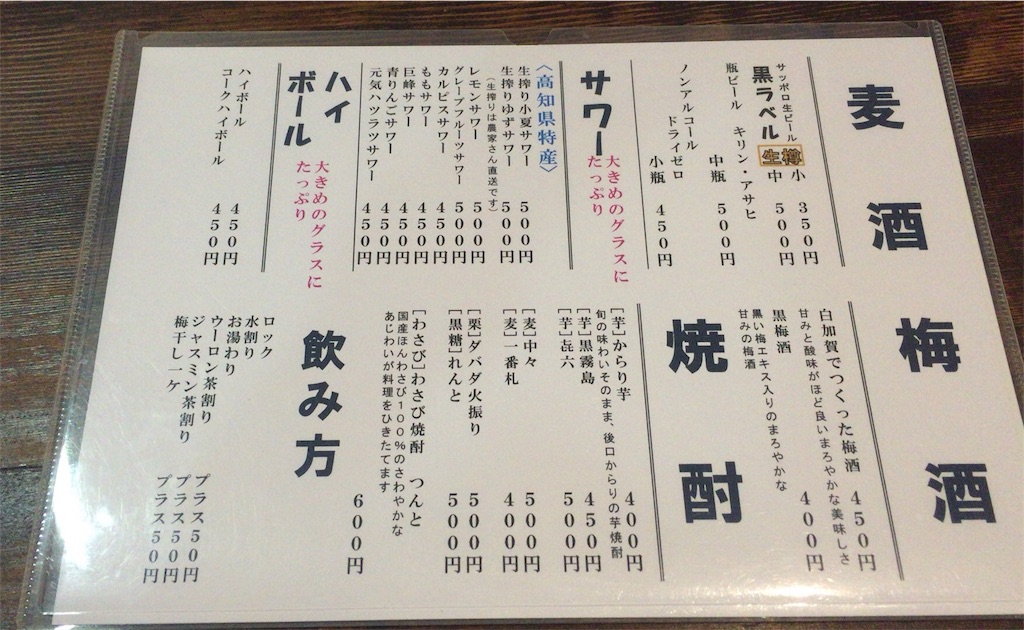 麦酒
サッポロ生ビール
黒ラベル 樽生 小 350円
中 500円
瓶ビール キリン・アサヒ
中瓶 500円
ノンアルコール
ドライゼロ
小瓶 450円
サワー
大きめのグラスに
たっぷり
〈高知県特産〉
生搾り小夏サワー 500円
生搾りゆずサワー 500円
(生搾りは農家さん直送です)
レモンサワー 500円
グレープフルーツサワー 500円
カルピスサワー 450円
ももサワー 450円
巨峰サワー 450円
青りんごサワー 450円
元気ハツラツサワー 450円
ハイボール
大きめのグラスに
たっぷり
ハイボール 450円
コークハイボール 450円
梅酒
白加賀でつくった梅酒 450円
甘みと酸味がほど良いまろやかな美味しさ
黒梅酒 400円
黒い梅エキス入りのまろやかな
甘みの梅酒
焼酎
[芋]からり芋 400円
旬の味わいそのまま、後口からりの芋焼酎
[芋]黒霧島 450円
[芋]㐂六 500円
[麦]中々 500円
[麦]一番札 400円
[栗]ダバダ火振り 500円
[黒糖]れんと 500円
[わさび]わさび焼酎 つんと
国産ほんわさび100%のさわやかな
あじわいが料理をひきたてます
600円
飲み方
ロック
水割り
お湯わり
ウーロン茶割り プラス50円
ジャスミン茶割り プラス50円
梅干し一ケ プラス50円